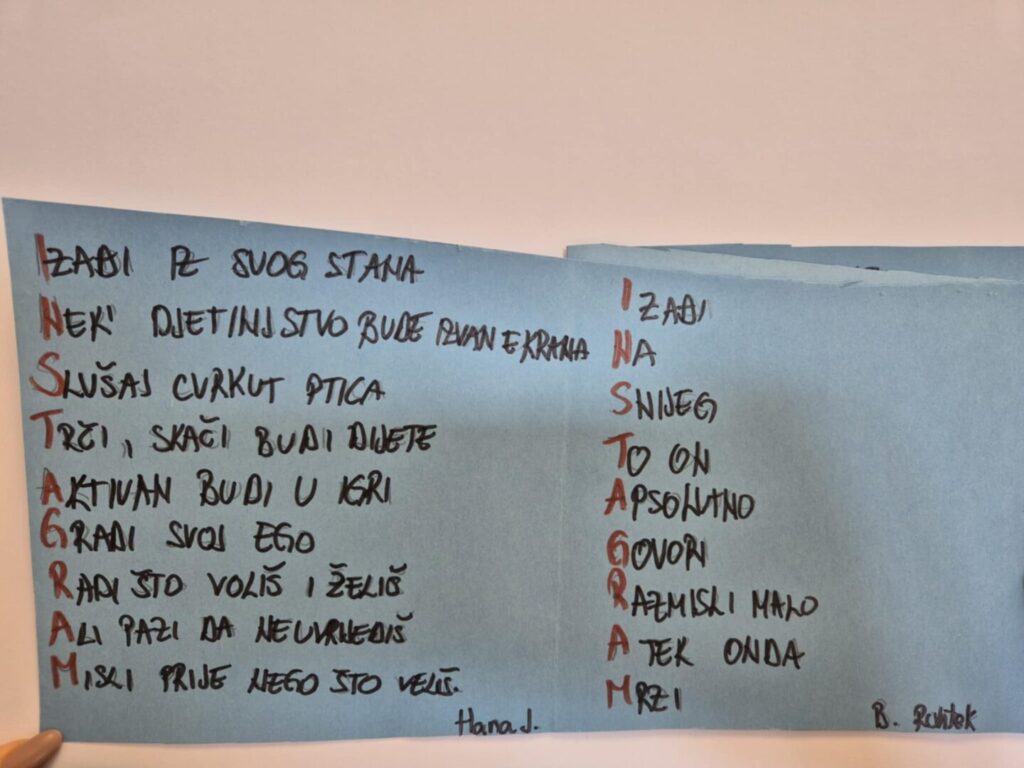 IZAĐI IZ SVOG STANA
NEK' DJETINJSTVO BUDE IZVAN EKRANA
SLUŠAJ CVRKUT PTICA
TRČI, SKAČI BUDI DIJETE
AKTIVAN BUDI U IGRI
GRADI SVOJ EGO
RADI ŠTO VOLIŠ I ŽELIŠ
ALI PAZI DA NE UVRIJEDIŠ
MISLI PRIJE NEGO ŠTO VELIŠ.
Hana J.
IZAĐI
NA
SNIJEG
TO ON
APSOLUTNO
GOVORI
RAZMISLI MALO
A TEK ONDA
MRZI
B.